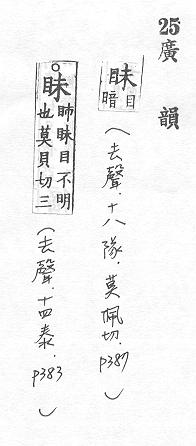 25廣韻
眛目暗
(去聲.十八隊.莫佩切.p387)
眛 眛目不明也莫貝切三
(去聲.十四泰.p383)